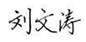 刘文涛